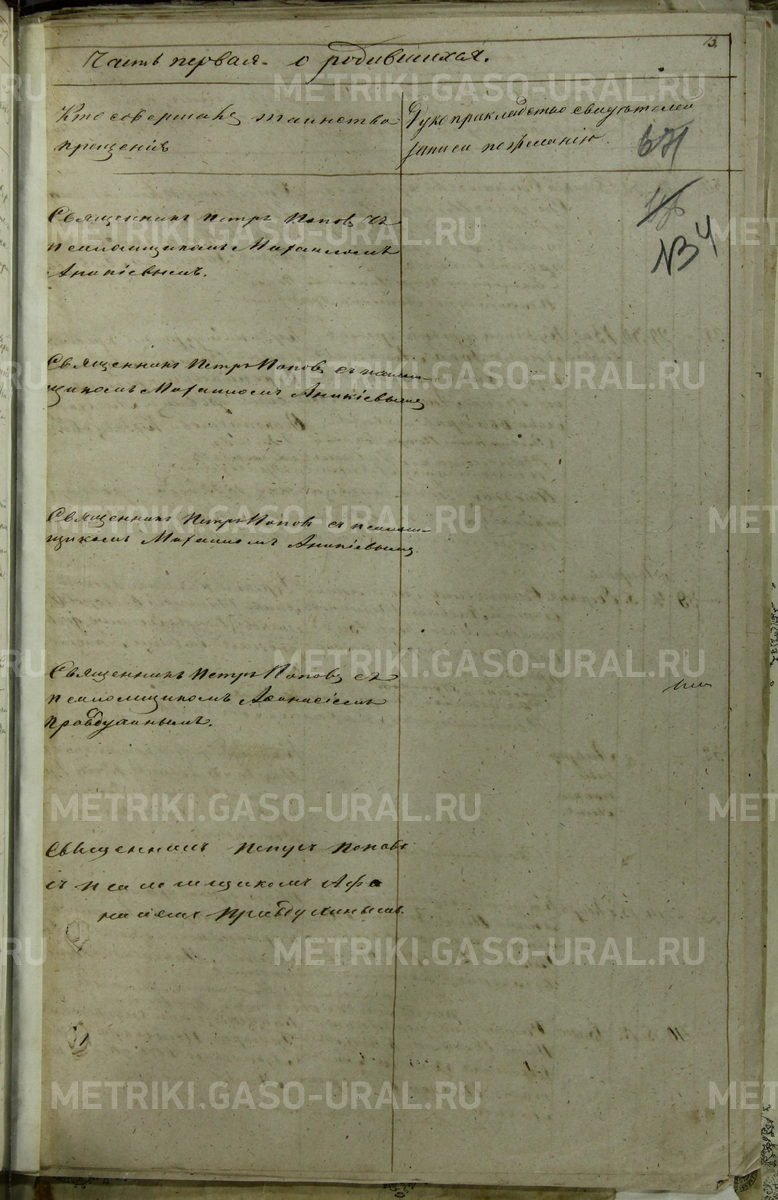 Часть первая - о родившихся.
Кто совершалъ таинство
крещенія
Рукоприкладство свидѣтелей
записи по желанію.
№ 34
Священникъ Петръ Поповъ съ
псаломщикомъ Михаиломъ
Аникіевымъ.
Священникъ Петръ Поповъ съ псалом-
щикомъ Михаиломъ Аникіевымъ
Священникъ Петръ Поповъ съ псалом-
щикомъ Михаиломъ Аникіевымъ.
Священникъ Петръ Поповъ съ
псаломщикомъ Аѳанасіемъ
Правдухинымъ.
Священникъ Петръ Поповъ
съ псаломщикомъ Афа
насіемъ Правдухинымъ.
METRIKI.GASO-URAL.RU